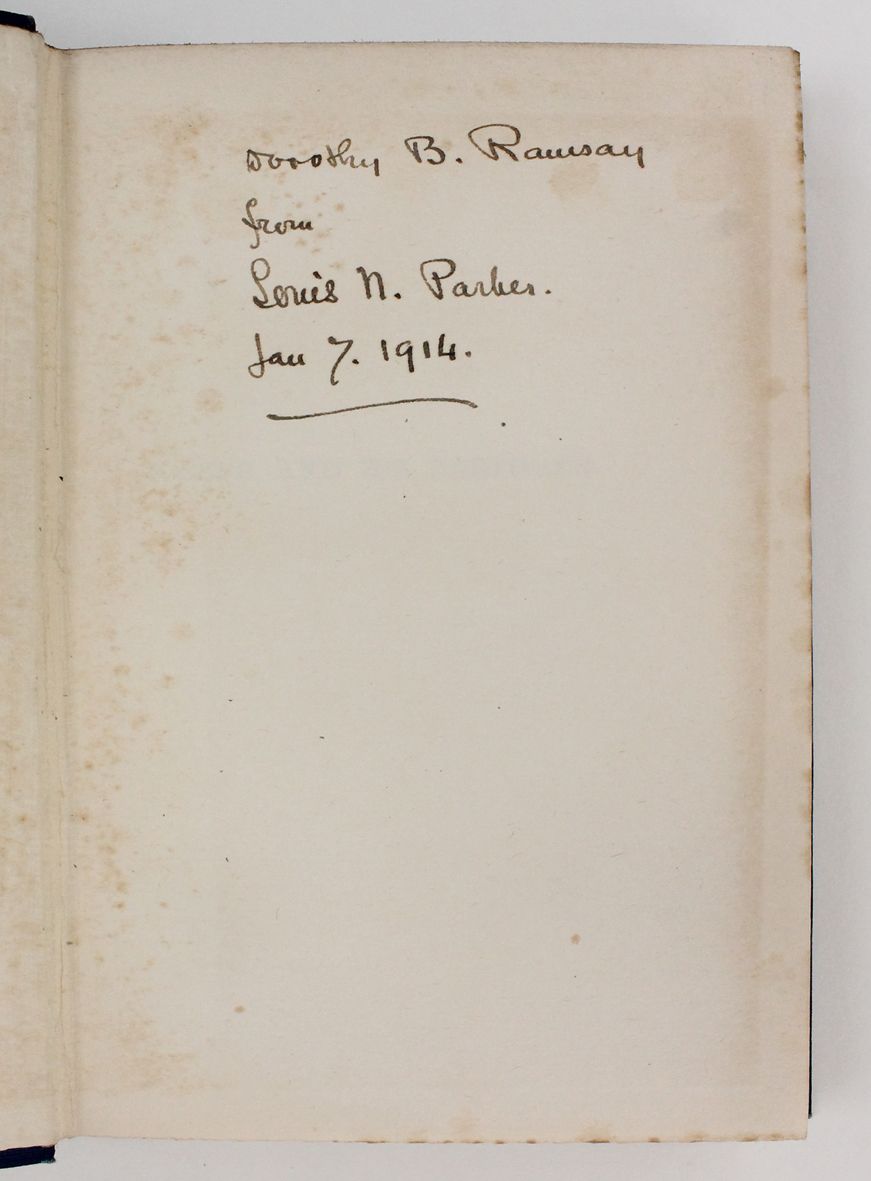 Dorothy B. Ramsay
from
Louis N. Parker.
Jan 7. 1914.